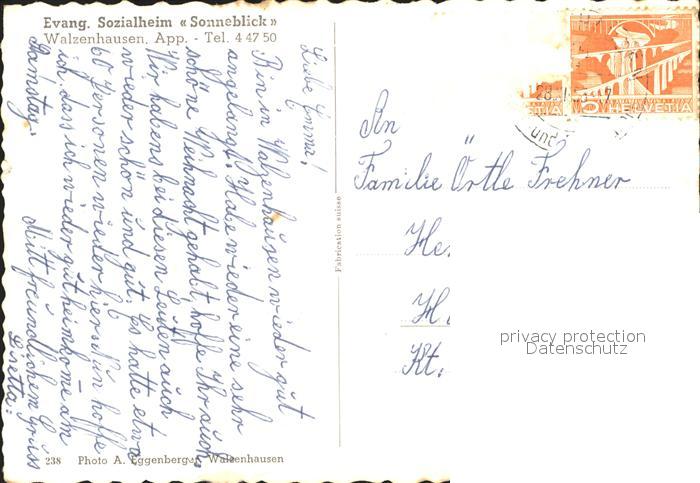 Evang. Sozialheim «Sonneblick»
Walzenhausen, App. - Tel. 4 47 50
Liebe Emma!
Bin in Walzenhausen wieder gut
angelangt. Habe wieder eine sehr
schöne Weihnacht gehabt, hoffe Ihr auch.
Wir habens bei diesen Leuten auch
wieder schön und gut. Es hatte etwa
60 Personen wieder hier. Nun hoffe
ich, dass ich wieder gut heimkome am
Samstag.
Mitt freundlichem Grüss
Lisetta.
238 Photo A. Eggenberger, Walzenhausen
Fabrication suisse
5 HELVETIA
An
Familie Örtle Frehner
He.
H.
Kt.
privacy protection
Datenschutz